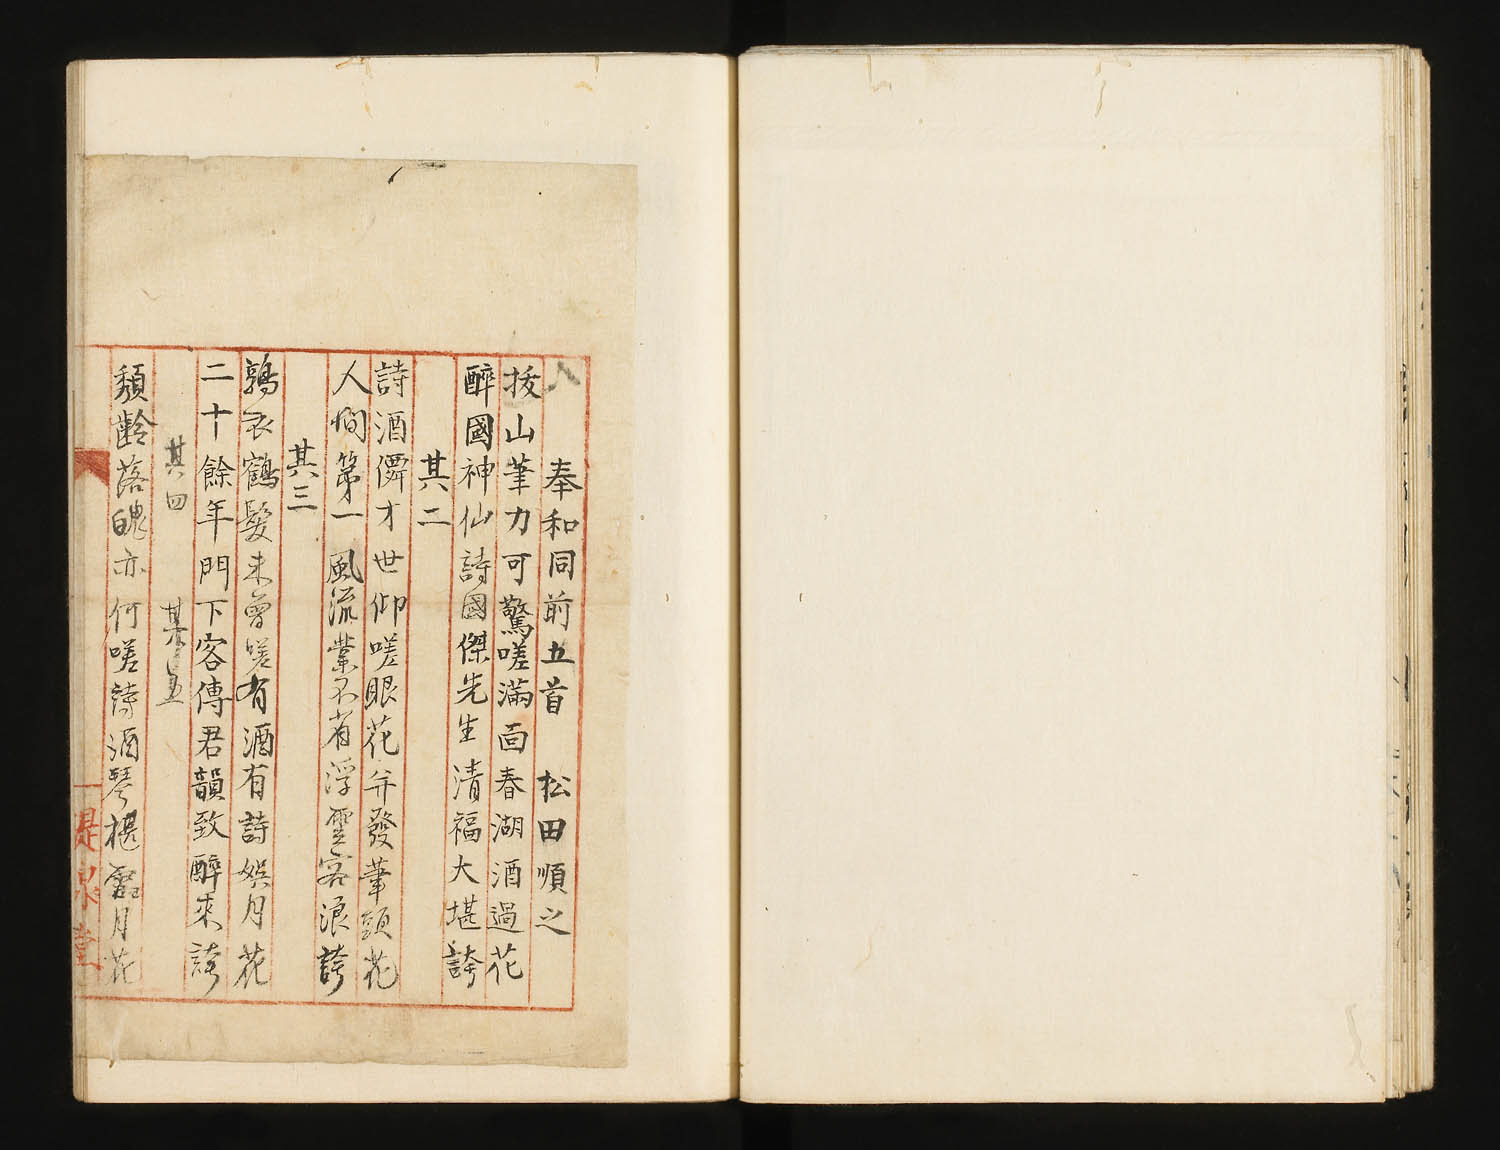 奉和同前五首 松田順之
拔山筆力可驚嗟滿面春湖酒過花
醉國神仙詩國傑先生清福大堪誇
其二
詩酒儁才世仰嗟眼花并發筆頭花
人間第一風流業不省浮雲客浪誇
其三
鶉衣鶴髮未曾嗟有酒有詩娯月花
二十餘年門下客傳君韻致醉來誇
其四 其五
頽齡落魄亦何嗟詩酒琴棋雪月花